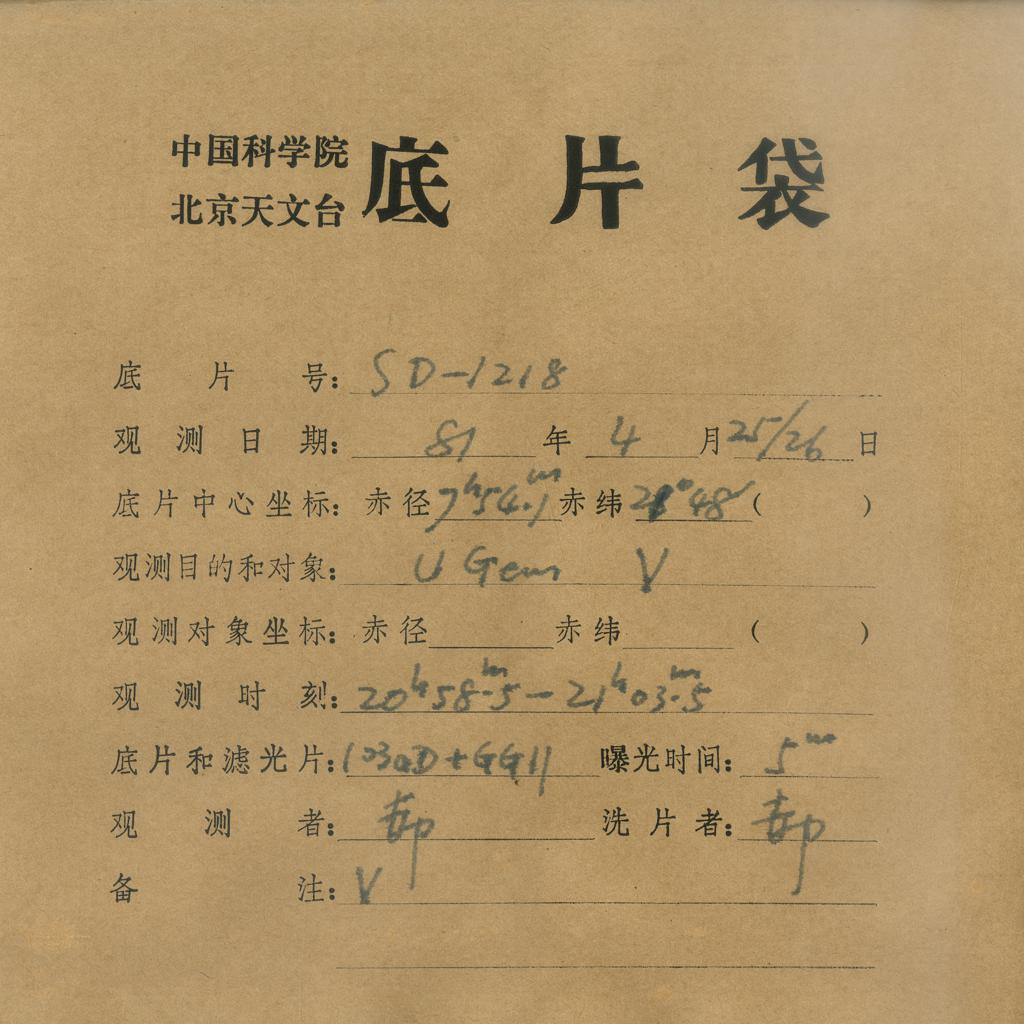 中国科学院
北京天文台
底片袋
底片号：SD-1218
观测日期：81年4月25/26日
底片中心坐标：赤径7h54.1m赤纬21°48′（ ）
观测目的和对象：U Gem V
观测对象坐标：赤径 赤纬 （ ）
观测时刻：20h58m.5-21h03m.5
底片和滤光片：103aD+GG11 曝光时间：5m
观测者： 洗片者：
备注：V